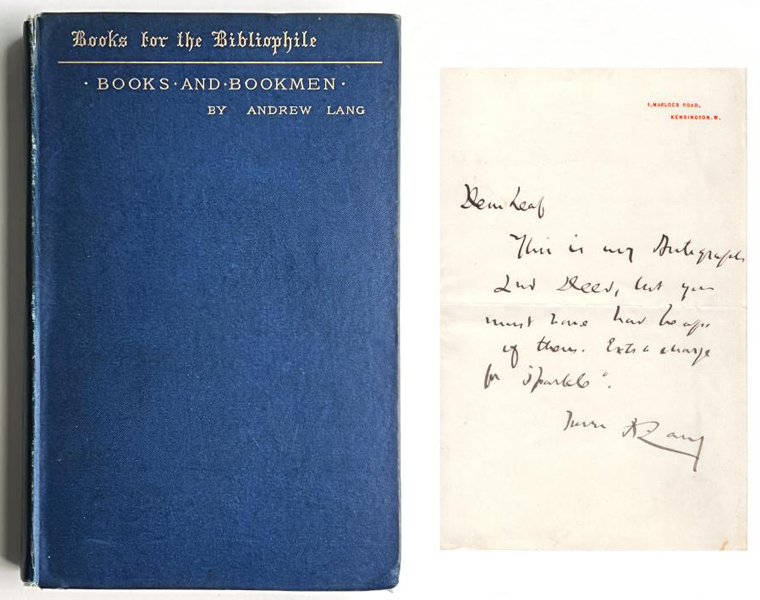 Books for the Bibliophile
· BOOKS · AND · BOOKMEN ·
BY ANDREW LANG
1, MARLOES ROAD,
KENSINGTON. W.
Dear Leaf
This is my Autograph
and Deed, but you
must have had heaps
of them. Extra charge
for "Sparkle".
Yours A Lang